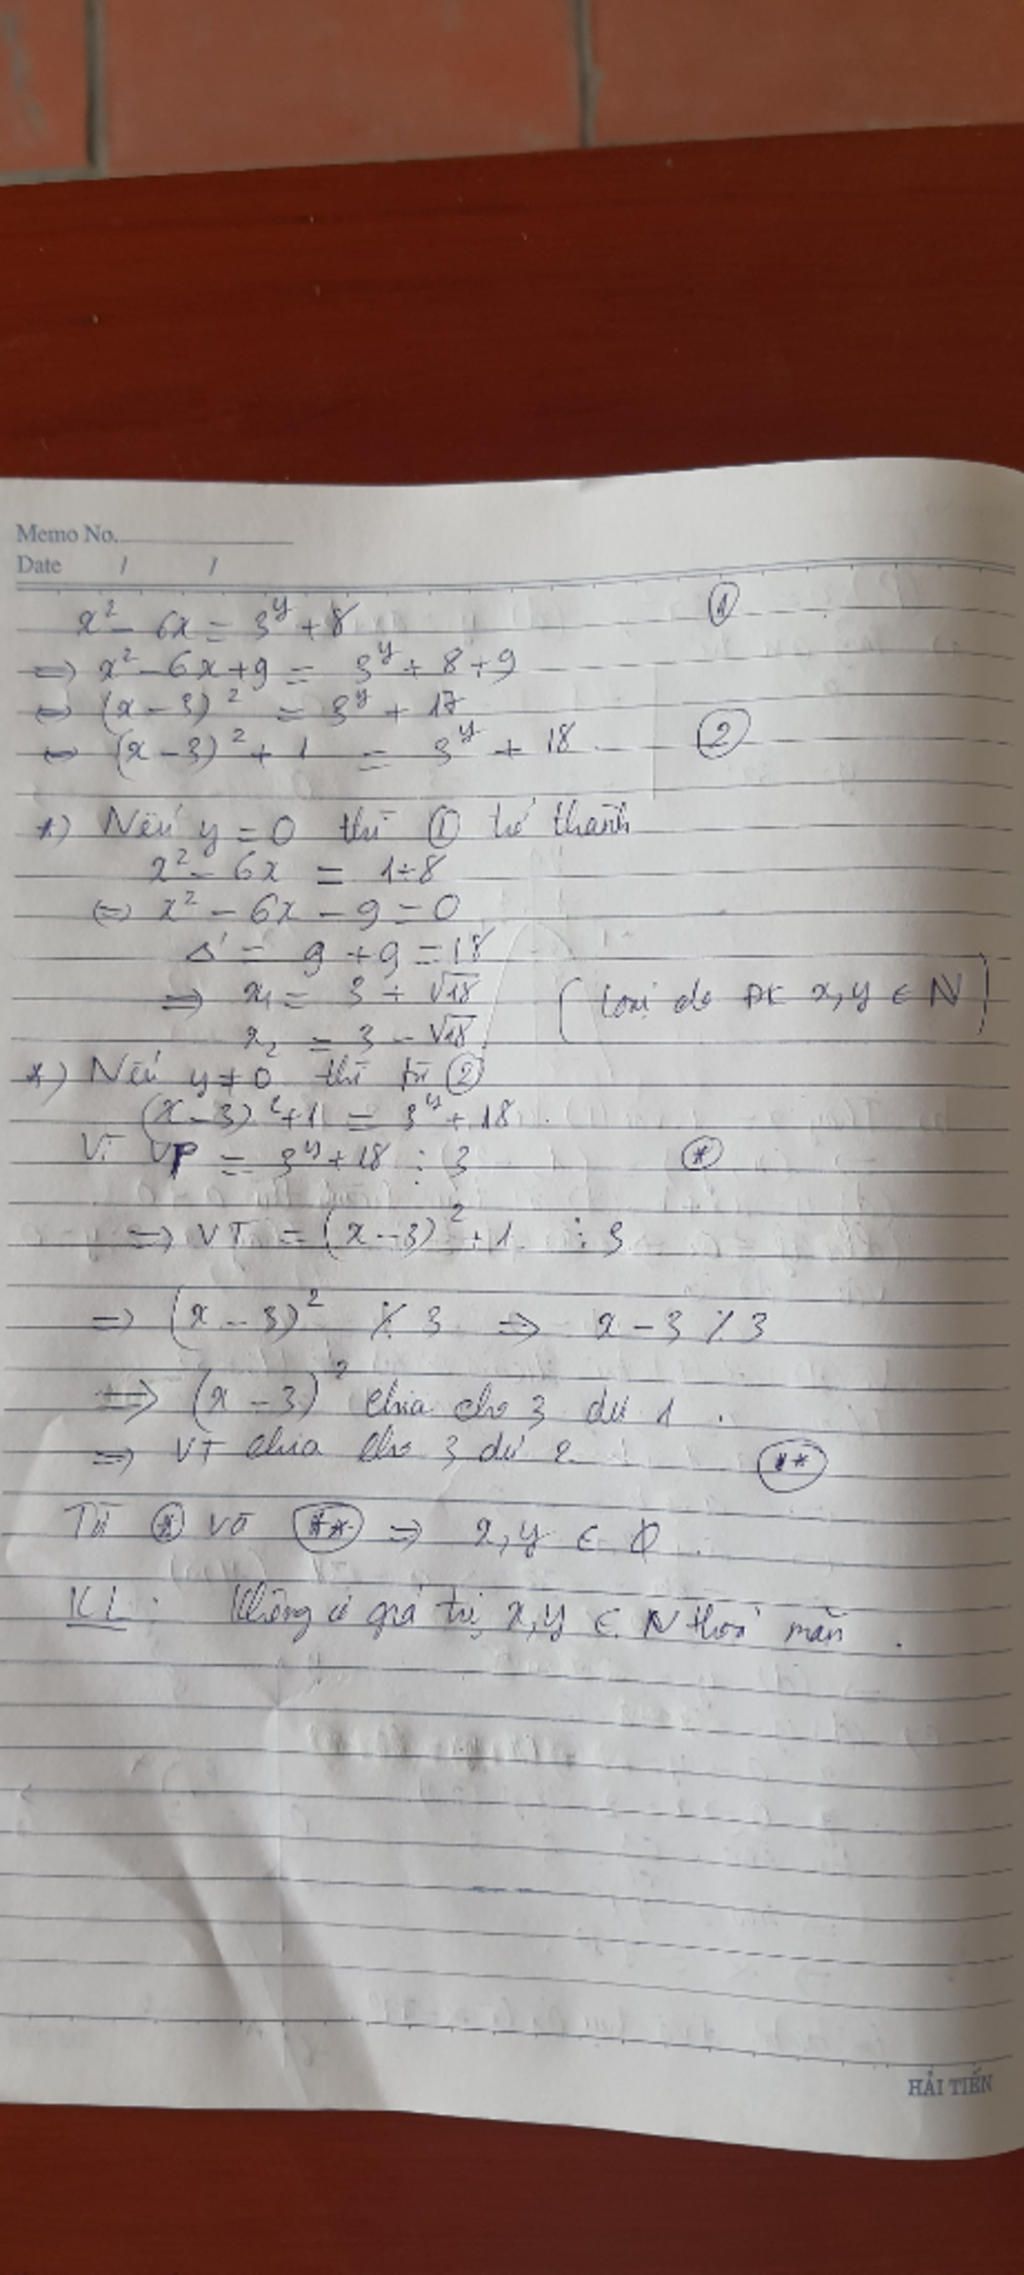 Memo No.
Date / /
x² - 6x = 3^y + 8 ①
⇔ x² - 6x + 9 = 3^y + 8 + 9
⇔ (x - 3)² = 3^y + 17
⇔ (x - 3)² + 1 = 3^y + 18 ②
*) Nếu y = 0 thì ① trở thành
x² - 6x = 1 + 8
⇔ x² - 6x - 9 = 0
Δ' = 9 + 9 = 18
⇒ x₁ = 3 + √18 (loại do ĐK x, y ∈ N)
x₂ = 3 - √18
*) Nếu y ≠ 0 thì từ ②
(x - 3)² + 1 = 3^y + 18.
Vì VP = 3^y + 18 ⋮ 3 (*)
⇒ VT = (x - 3)² + 1 ⋮ 3
⇒ (x - 3)² ⋮̸ 3 ⇒ x - 3 ⋮̸ 3
⇒ (x - 3)² chia cho 3 dư 1.
⇒ VT chia cho 3 dư 2 (**)
Từ (*) và (**) ⇒ x, y ∈ ∅.
KL: Không có giá trị x, y ∈ N thoả mãn.
HẢI TIẾN